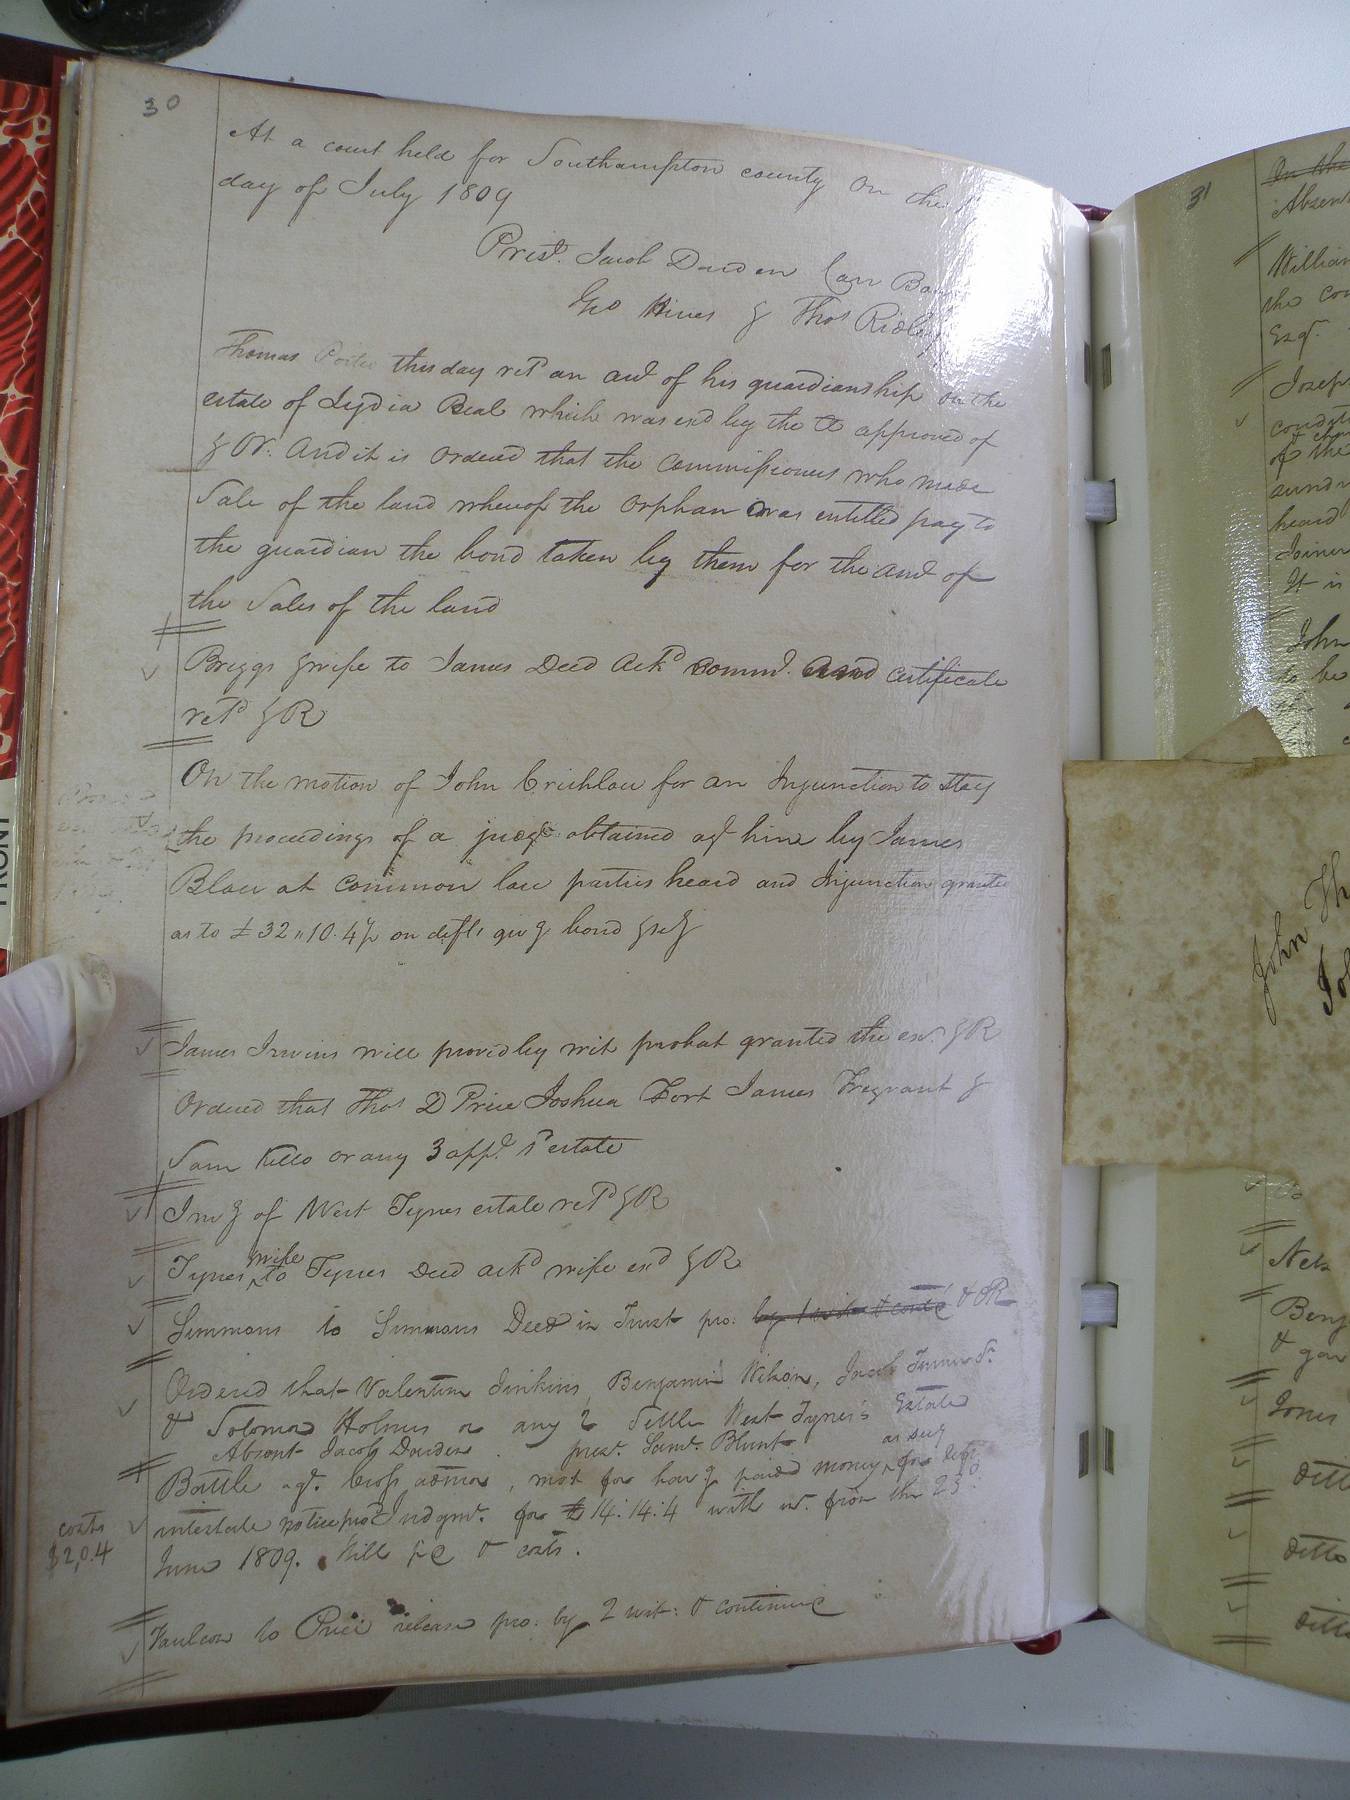 30
At a court held for Southampton county on the
day of July 1809
Prest. Jacob Darden Carr
Geo Hines & Thos Ridley
Thomas Porter this day retd an acct of his guardianship on the
estate of Lydia Beal which was exd by the Ct approved of
& OR. And it is ordered that the commissioners who made
Sale of the land whereof the orphan was entitled pay to
the guardian the bond taken by them for the amt of
the Sales of the land
Briggs & wife to James Deed ackd commn. and certificate
retd & R
On the motion of John Crichlow for an Injunction to stay
the proceedings of a judgt obtained agt him by James
Blow at common law parties heard and Injunction granted
as to £ 32 " 10. 4 ½ on defts givg bond &c
James Irwins will proved by wit probat granted the exr. & R
Ordered that Thos D Price Joshua Fort James Tregvant &
Sam Kello or any 3 appe. sd estate
Invy of West Tynes estate retd & R
Tynes & wife to Tynes Deed ackd wife exd & R
Simmons to Simmons Deed in Trust pro: by 1 wit & contd & R
Ordered that Valentine Jenkins, Benjamin Wilson, Jacob Turner Sr.
& Solomon Holmes or any 2 Settle West Tynes's Estate
Absent Jacob Darden . prest. Saml. Blunt
Battle agt. Cross admor, mot for havg paid money as suy for defts
intestate notice provd Judgmt. for £ 14: 14: 4 with int. from the 23d.
June 1809. Will &c & costs.
costs
$2,04
Faulcon to Price release pro: by 2 wit: & continued
31
Absent
William
the
Esqr.
Joseph
of the
heard
Joiner
It is
John
to be
John
Nels
Benj
Jones
ditto
ditto
ditto
FRONT